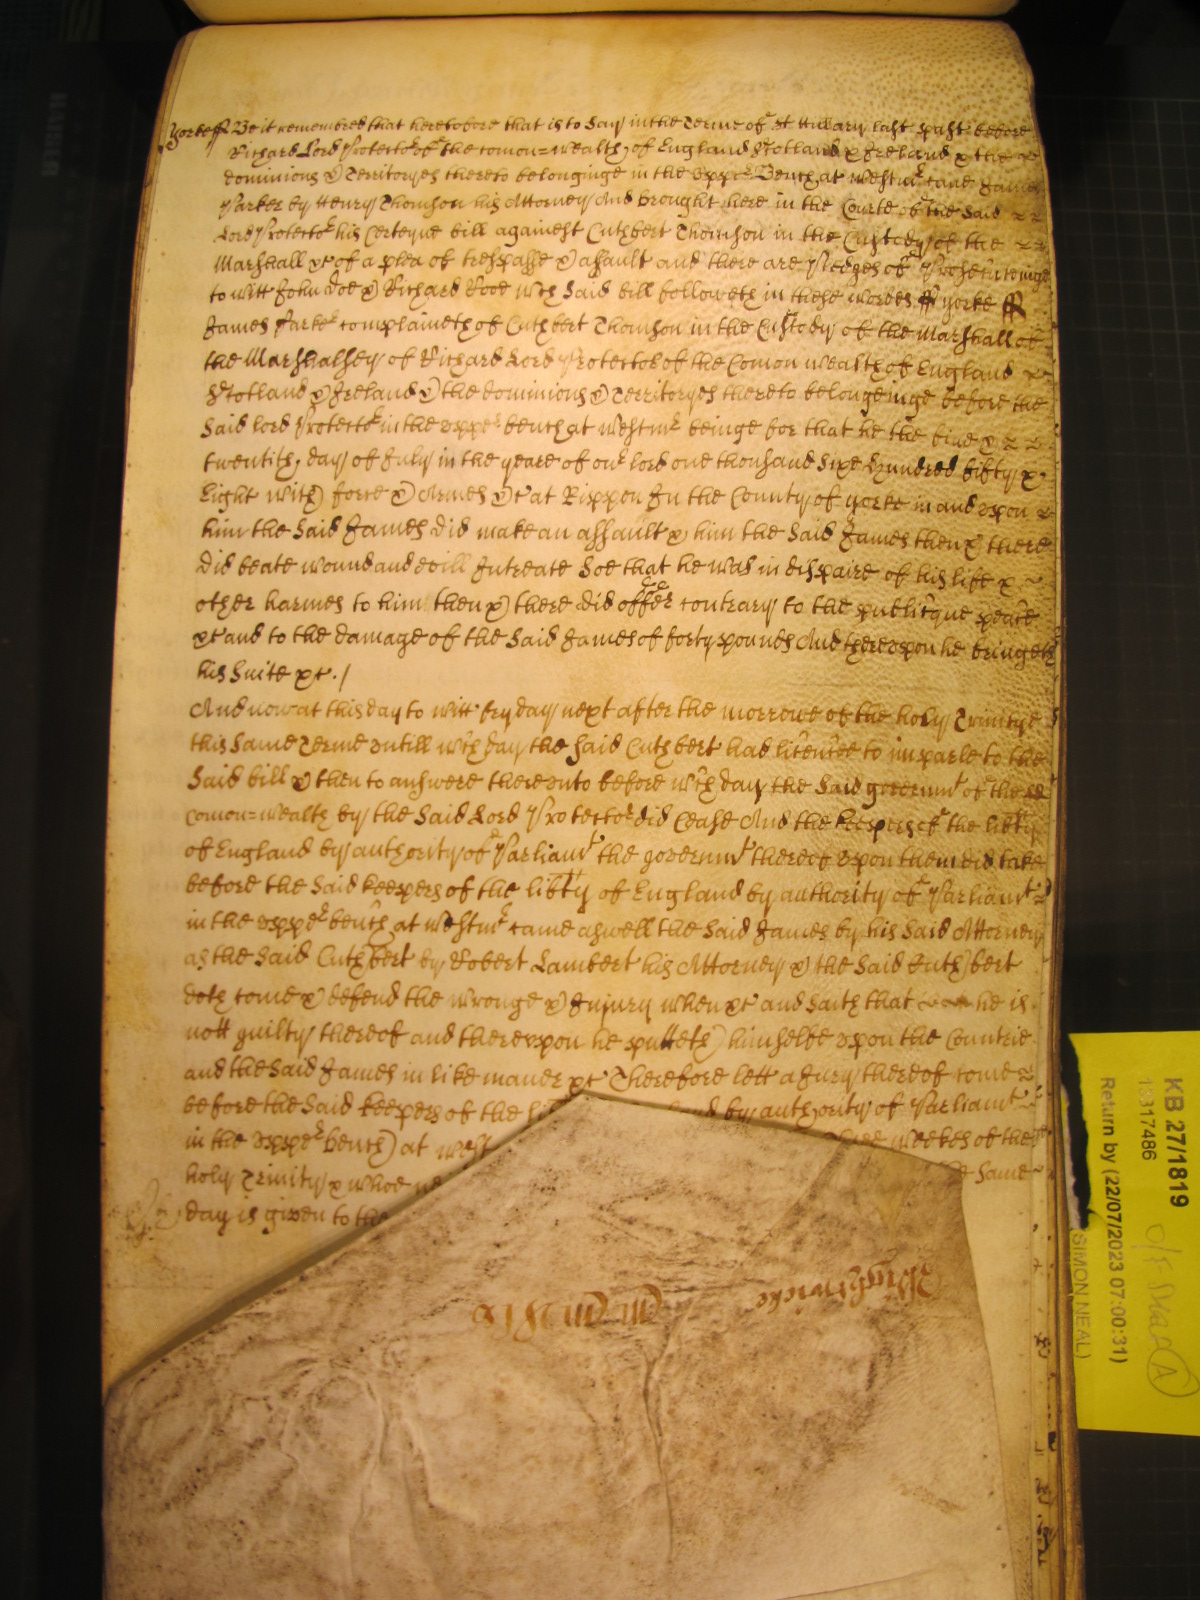 Yorke ss Be it remembred that heretofore that is to Say in the Terme of St Hillary last past before
Richard Lord Protector of the comon=wealth of England Scotland & Ireland & the
dominions & Territoryes thereto belonginge in the Upper Bench at Westmr came James
Parker by Henry Thomson his Attorney And brought here in the Courte of the Said
Lord Protector his Certeyne bill against Cuthbert Thomson in the Custody of the
Marshall &c of a plea of trespasse & assault and there are Pledges of Prosecuteinge
to witt John Doe & Richard Rooe wch Said bill followeth in these wordes ss yorke ss
James Parker complaineth of Cuthbert Thomson in the Custody of the Marshall of
the Marshalsey of Richard Lord Protector of the Comon wealth of England
Scotland & Ireland & the dominions & Territoryes thereto belongeinge before the
Said lord Protector in the upper bench at Westmr beinge for that he the five &
twentith day of July in the yeare of our lord one thousand Sixe hundred fifty &
Eight with force & Armes &c at Rippon In the County of yorke in and upon
him the Said James did make an assault & him the Said James then & there
did beate wound and evill Intreate Soe that he was in dispaire of his life &
other harmes to him then & there did offer contrary to the publicque peace
&c and to the damage of the Said James of forty pounes And thereupon he bringeth
his Suite &c ./
And now at this day to witt fryday next after the morrowe of the holy Trinitye
this Same Terme untill wch day the Said Cuthbert had licence to imparle to the
Said bill & then to answere thereunto before wch day the Said governmt of the
comon=wealth by the Said Lord Protector did Cease And the keepers of the libty
of England by authority of Parliamt the governmt thereof upon them did take
before the Said keepers of the libty of England by authority of Parliamt
in the upper bench at Westmr came aswell the Said James by his Said Attorney
as the Said Cuthbert by Robert Lambert his Attorney & the Said Cuthbert
doth come & defend the wronge & Injury when &c and Saith that he is
nott guilty thereof and thereupon he putteth himselfe upon the Countrie
and the Said James in like maner &c Therefore lett a Jury thereof come
before the Said keepers of the by authority of Parliamt
in the upper bench at weekes of the
holy Trinity & whoe Same
day is given to the
KB 27/1819
1317486
Return by (22/07/2023 07:00:31)
SIMON NEAL)
A
Wightwicke